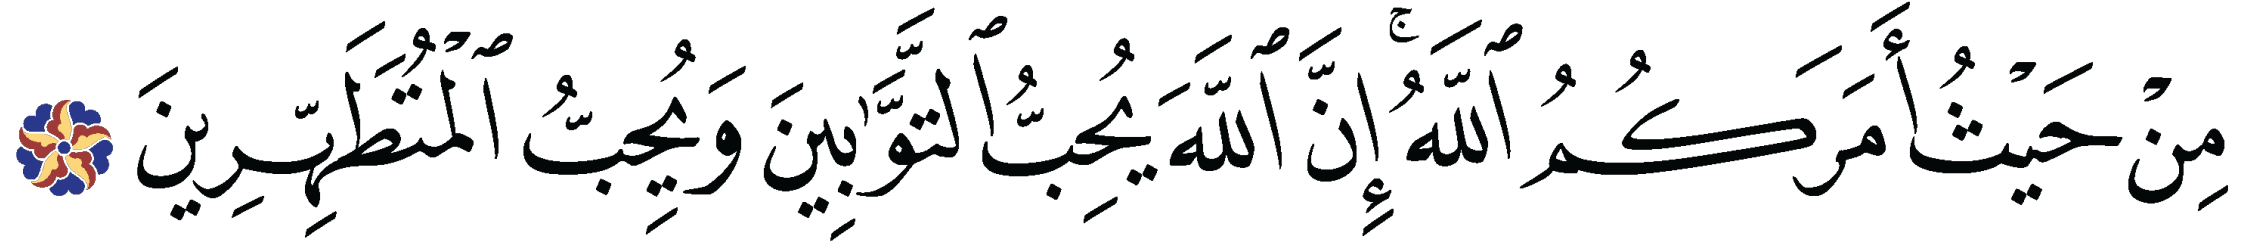 مِنْ حَيْثُ أَمَرَكُمُ ٱللَّهُ ۚ إِنَّ ٱللَّهَ يُحِبُّ ٱلتَّوَّٰبِينَ وَيُحِبُّ ٱلْمُتَطَهِّرِينَ